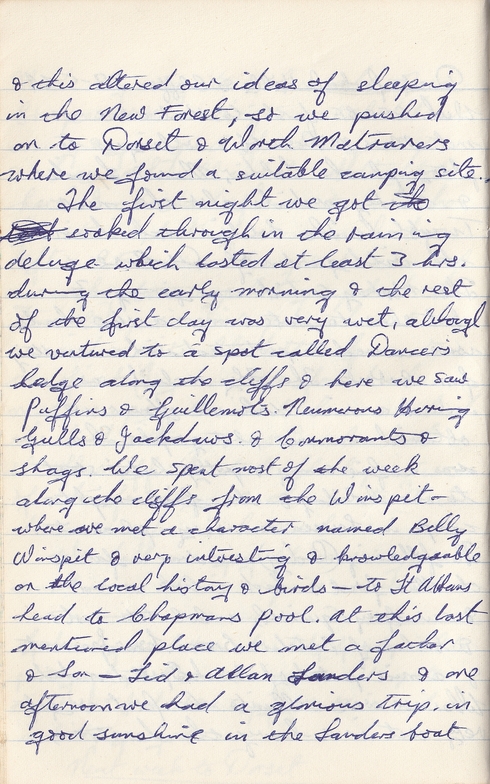 & this altered our ideas of sleeping
in the New Forest, so we pushed
on to Dorset & Worth Matravers
where we found a suitable camping site.
The first night we got the
soaked through in the raining
deluge which lasted at least 3 hrs.
during the early morning & the rest
of the first day was very wet, although
we ventured to a spot called Dancers
hedge along the cliffs & here we saw
Puffins & Guillemots. Neumerous Herring
Gulls & Jackdaws. & Commorants &
shags. We spent most of the week
along the cliffs from the Winspit –
where we met a character named Billy
Winspit & very intresting & knowledgeable
on the local history & birds – to St Albans
head to Chapmans Pool. At this last
mentioned place we met a father
& Son – Sid & Allan Sanders & one
afternoon we had a glorious trip. in
good sunshine in the Sanders boat